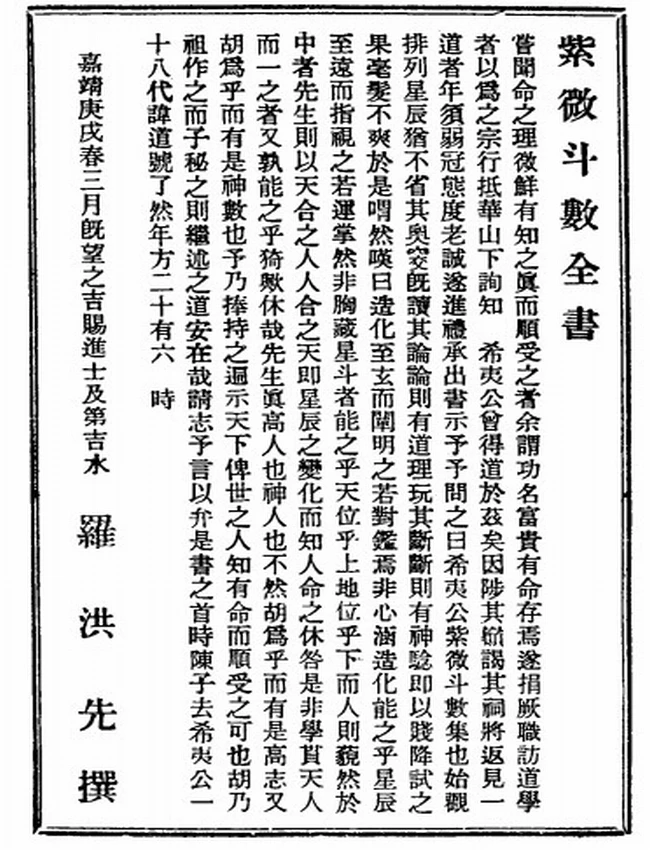 紫微斗數全書
嘗聞命之理微鮮有知之眞而順受之者余謂功名富貴有命存焉遂捐厥職訪道學
者以爲之宗行抵華山下詢知　希夷公曾得道於茲矣因陟其巔謁其祠將返見一
道者年須弱冠態度老誠遂進禮承出書示予予問之曰希夷公紫微斗數集也始觀
排列星辰猶不省其奧窔既讀其論論則有道理玩其斷斷則有神驗即以賤降試之
果毫髮不爽於是喟然嘆曰造化至玄而闡明之若對鑑焉非心涵造化能之乎星辰
至遠而指視之若運掌然非胸藏星斗者能之乎天位乎上地位乎下而人則藐然於
中者先生則以天合之人人合之天即星辰之變化而知人命之休咎是非學貫天人
而一之者又孰能之乎猗歟休哉先生眞高人也神人也不然胡爲乎而有是高志又
胡爲乎而有是神數也予乃捧持之遍示天下俾世之人知有命而順受之可也胡乃
祖作之而子秘之則繼述之道安在哉請志予言以弁是書之首時陳子去希夷公一
十八代諱道號了然年方二十有六　時
嘉靖庚戌春三月既望之吉賜進士及第吉水　羅洪先撰